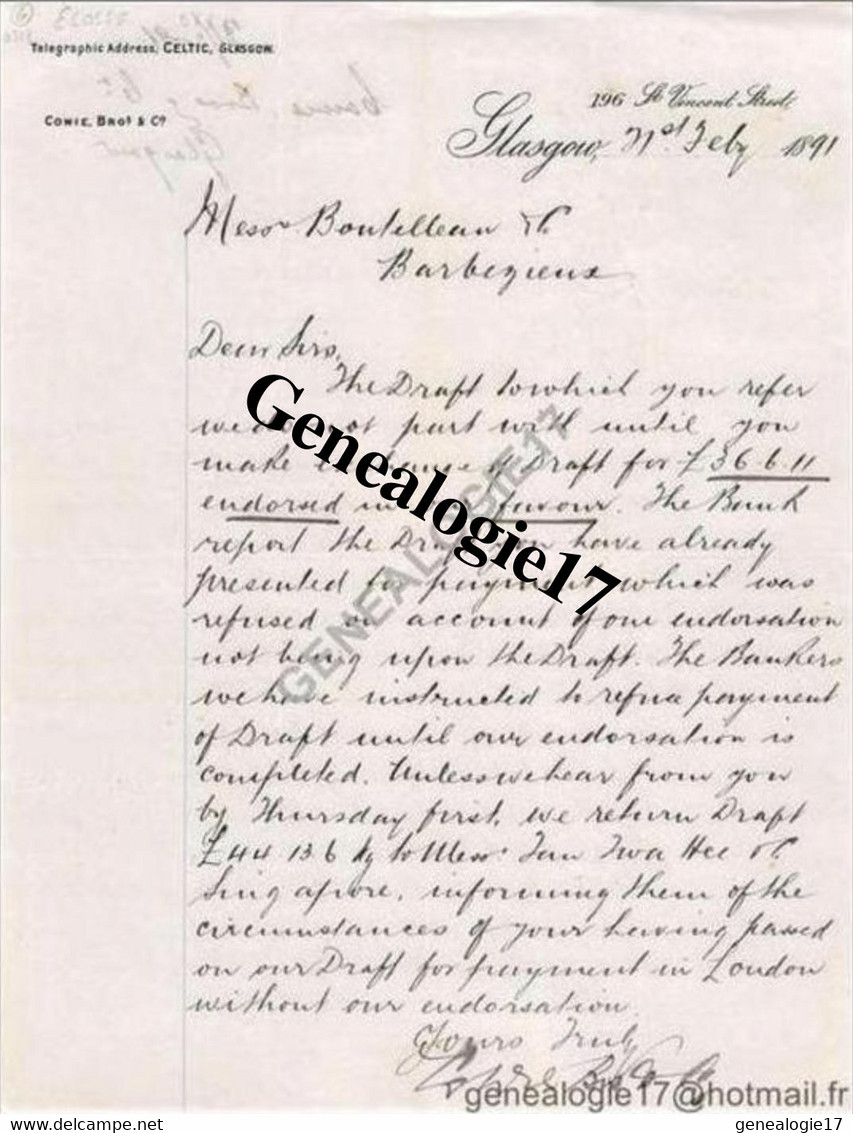 Telegraphic Address, CELTIC, GLASGOW.
COWIE, BROS & Co
196 St Vincent Street
Glasgow, 21st Feby 1891
Messrs Boutelleau & Co
Barbezieux
Dear Sirs,
The Draft to which you refer
we do not part with until you
make exchange of Draft for £36.6.11
endorsed in favour. The Bank
report the Draft you have already
presented for payment which was
refused on account of our endorsation
not being upon the Draft. The Bankers
we have instructed to refuse payment
of Draft until our endorsation is
completed. Unless we hear from you
by Thursday first, we return Draft
£44 13 6 to Messrs Tan Twa Hee & Co
Singapore, informing them of the
circumstances of your having passed
on our Draft for payment in London
without our endorsation.
Yours Truly
Cowie Bros & Co
Genealogie17
GENEALOGIE17
genealogie17@hotmail.fr
delcampe.net
genealogie17